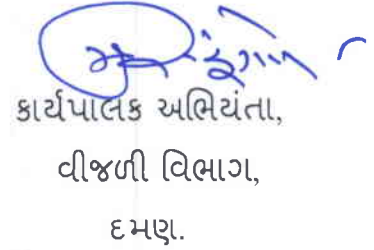 કાર્યપાલક અભિયંતા,
વીજળી વિભાગ,
દમણ.